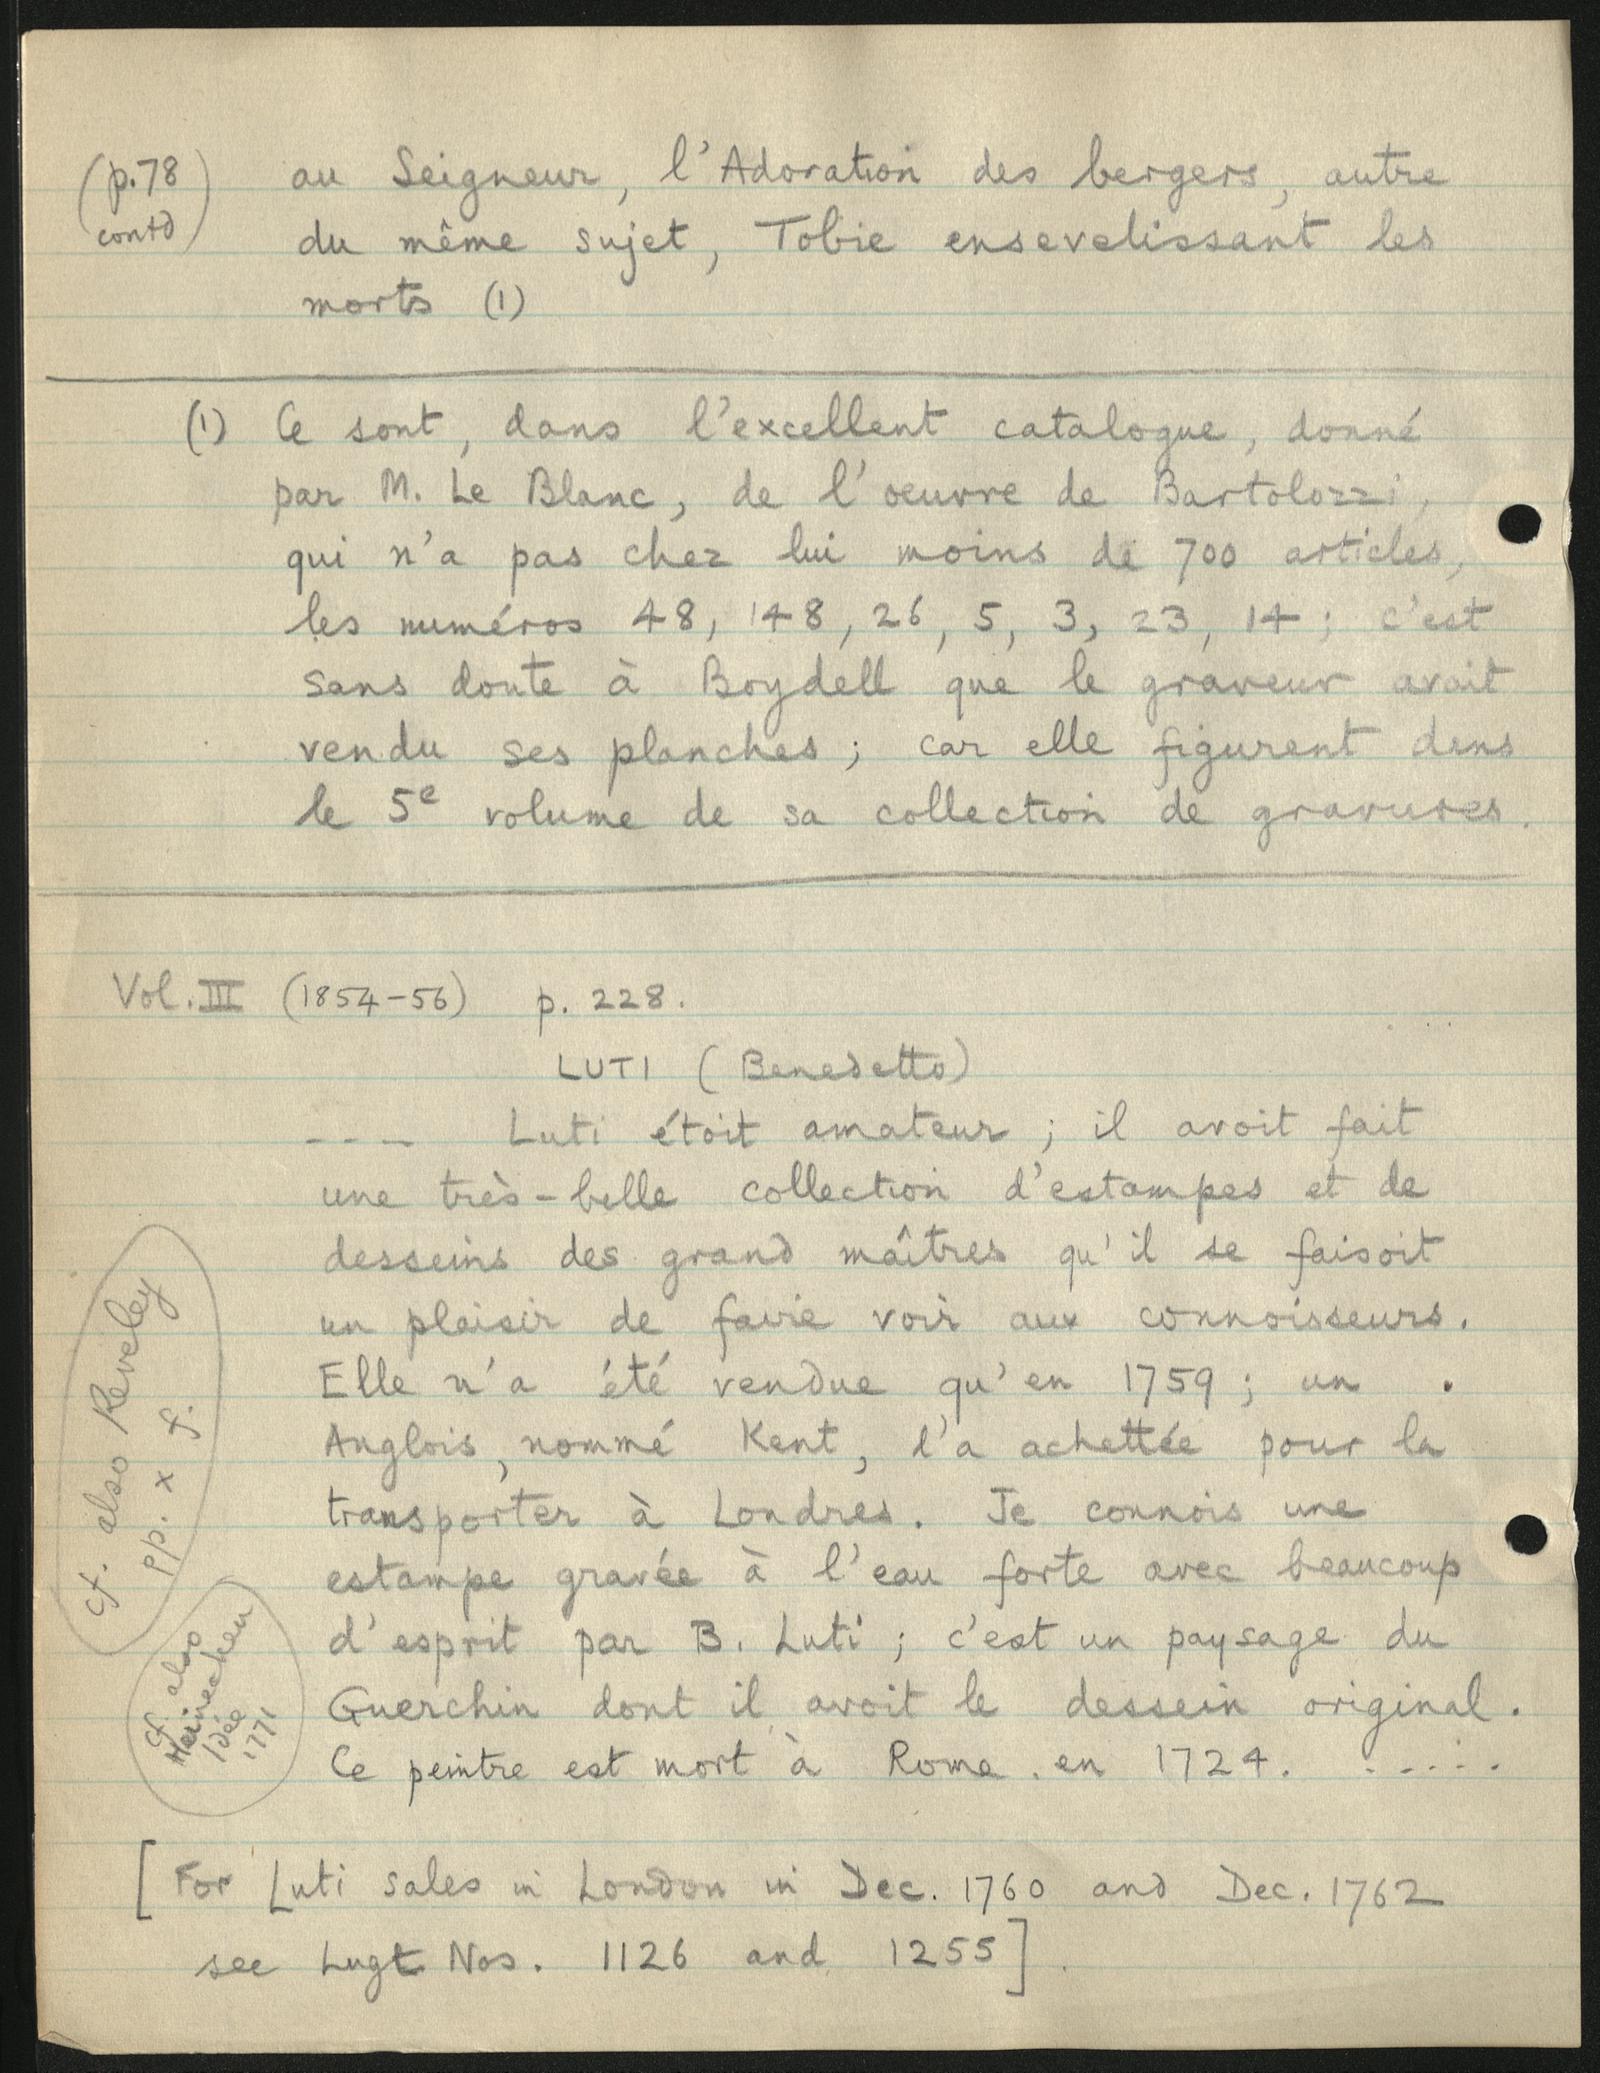 (p.78 contd) au Seigneur, l'Adoration des bergers, autre
du même sujet, Tobie ensevelissant les
morts (1)
(1) Ce sont, dans l'excellent catalogue, donné
par M. Le Blanc, de l'oeuvre de Bartolozzi,
qui n'a pas chez lui moins de 700 articles,
les numéros 48, 148, 26, 5, 3, 23, 14; c'est
sans doute à Boydell que le graveur avait
vendu ses planches; car elle figurent dans
le 5e volume de sa collection de gravures.
Vol. III (1854-56) p. 228.
LUTI (Benedetto)
--- Luti étoit amateur; il avoit fait
une très-belle collection d'estampes et de
desseins des grand maîtres qu'il se faisoit
un plaisir de faire voir aux connoisseurs.
Elle n'a été vendue qu'en 1759; un
Anglois, nommé Kent, l'a achettée pour la
transporter à Londres. Je connois une
estampe gravée à l'eau forte avec beaucoup
d'esprit par B. Luti; c'est un paysage du
Guerchin dont il avoit le dessein original.
Ce peintre est mort à Rome en 1724. .....
cf. also Reveley
pp. x f.
cf. also
Heinecken
Idée
1771
[For Luti sales in London in Dec. 1760 and Dec. 1762
see Lugt Nos. 1126 and 1255].